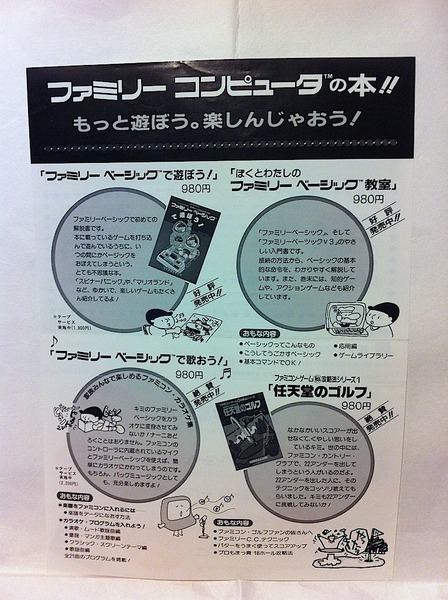 ファミリー コンピュータ™の本!!
もっと遊ぼう。楽しんじゃおう!
「ファミリー ベーシック™で遊ぼう!」
980円
ファミリーベーシックで初めての
解説書です。
本に載っているゲームを打ち込
んで遊んでいるうちに、い
つの間にかベーシックを
おぼえてしまうという、
とても不思議な本。
「スピナーパニック」や、「マリオランド」
など、ゆかいで、楽しいゲームもたくさ
ん紹介してるよ!
※テープ
サービス
実施中(1,800円)
好評
発売中!!
「ぼくとわたしの
ファミリー ベーシック™教室」
980円
好評
発売中!!
「ファミリーベーシック」、そして
「ファミリーベーシックV3」のやさ
しい入門書です。
接続の方法から、ベーシックの基
本的な命令を、わかりやすく解説して
います。また、巻末には、知的ゲー
ムや、アクションゲームなども紹介
しています。
おもな内容
●ベーシックってこんなもの
●こうしてうごかすベーシック
●基本コマンドでOK!
●応用編
●ゲームライブラリー
「ファミリー ベーシック™で歌おう!」
980円
好評
発売中!!
家族みんなで楽しめるファミコン・カラオケ集
キミのファミリー
ベーシックをカラ
オケに変身させてみ
ないか!ナーニおど
ろくことはありません。ファミコンの
コントローラに内蔵されているマイク
とファミリーベーシックを使えば、簡
単にカラオケにかわってしまうのです。
もちろん、バックミュージックとして
も、充分楽しめますよ!
※テープ
サービス
実施中
(2,200円)
おもな内容
●楽譜をファミコンに入れるには
●楽譜をデータになおす方法
●カラオケ・プログラムを入れよう!
●演歌・ムード歌謡曲編
●童謡・マンガ主題歌編
●クラシック・スクリーンテーマ編
●歌謡曲編
全21曲のプログラムを掲載!
ファミコン・ゲーム㊙攻略法シリーズ1
「任天堂のゴルフ」
980円
好評
発売中!!
なかなかいいスコアーが出
せなくてくやしい思いをし
ているキミ。世の中には、
ファミコン・カントリー・
クラブで、22アンダーを出して
しまうという人がいるのだよ。
22アンダーを出した人に、その
テクニックをコッソリ教えても
らいました。キミも22アンダー
に挑戦してみないか!
おもな内容
●ファミコン・ゴルフファンの皆さんへ
●ファミリーC.C.テクニック
●パターをうまく使ってスコアアップ
●プロもまっ青 18ホール攻略法